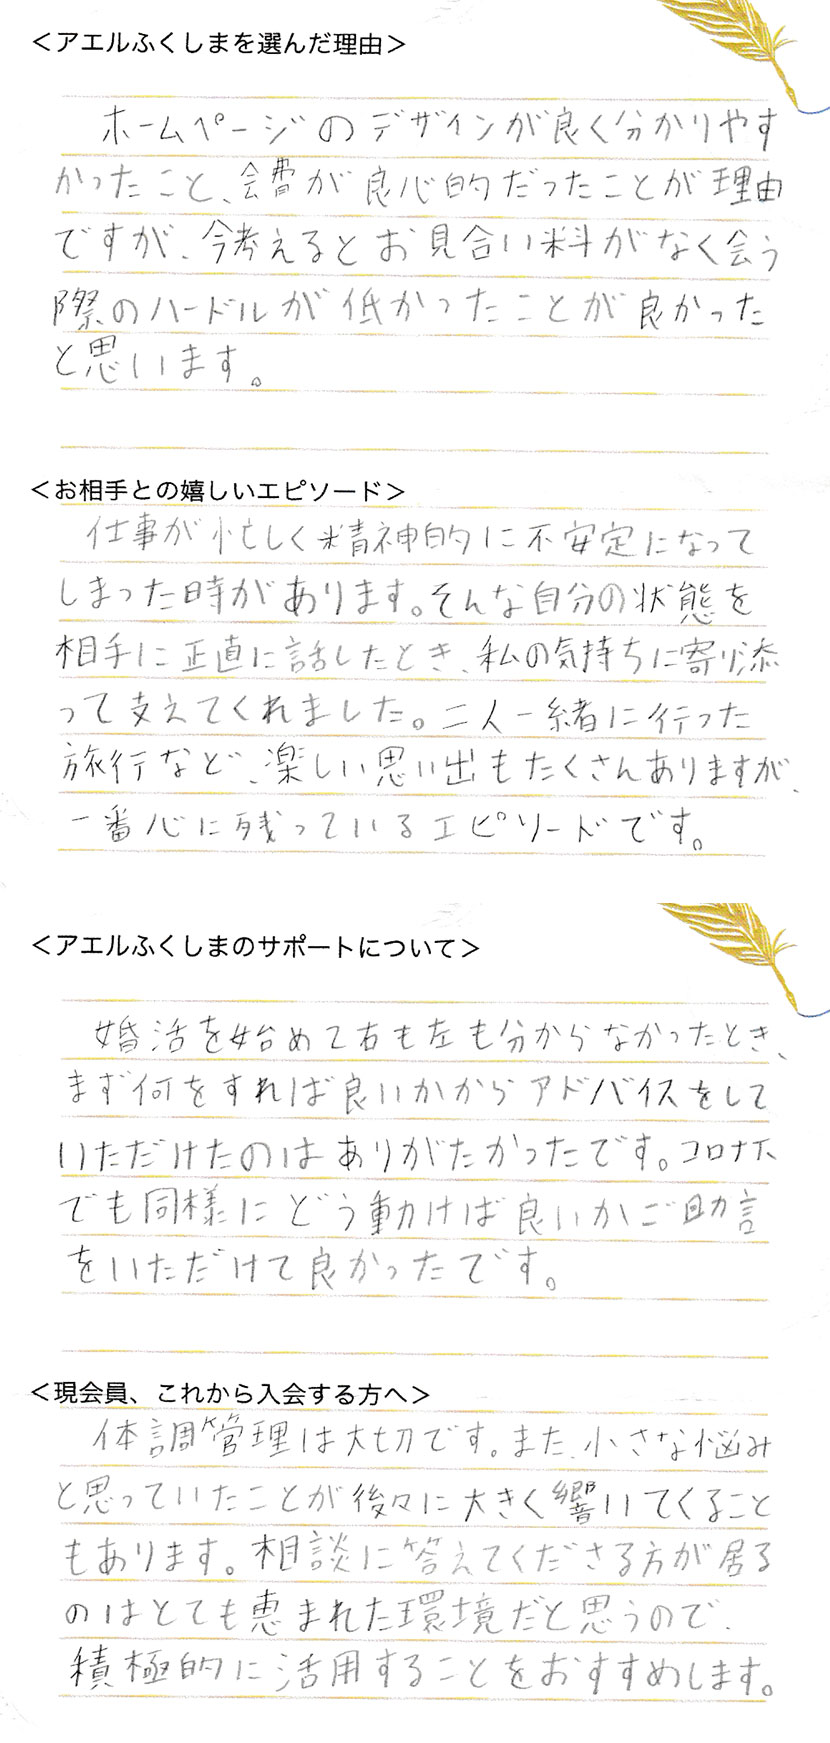 ＜アエルふくしまを選んだ理由＞
ホームページのデザインが良く分かりやす
かったこと、会費が良心的だったことが理由
ですが、今考えるとお見合い料がなく会う
際のハードルが低かったことが良かった
と思います。
＜お相手との嬉しいエピソード＞
仕事が忙しく精神的に不安定になって
しまった時があります。そんな自分の状態を
相手に正直に話したとき、私の気持ちに寄り添
って支えてくれました。二人一緒に行った
旅行など、楽しい思い出もたくさんありますが、
一番心に残っているエピソードです。
＜アエルふくしまのサポートについて＞
婚活を始めて右も左も分からなかったとき、
まず何をすれば良いかからアドバイスをして
いただけたのはありがたかったです。コロナ下
でも同様にどう動けば良いかご助言
をいただけて良かったです。
＜現会員、これから入会する方へ＞
体調管理は大切です。また、小さな悩み
と思っていたことが後々に大きく響いてくること
もあります。相談に答えてくださる方が居る
のはとても恵まれた環境だと思うので、
積極的に活用することをおすすめします。